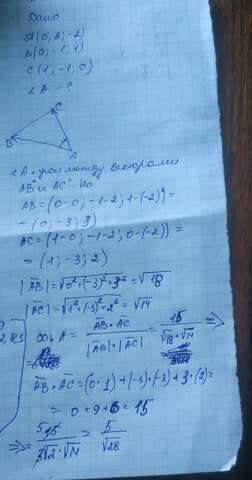 Дано
A(0; 2; -2)
B(0; -1; 1)
C(1; -1; 0)
∠A - ?
C
B
A
∠A - угол между векторами
AB и AC, но
AB = (0-0; -1-2; 1-(-2)) =
= (0; -3; 3)
AC = (1-0; -1-2; 0-(-2)) =
= (1; -3; 2)
|AB| = √0² + (-3)² + 3² = √18
|AC| = √1² + (-3)² + 2² = √14
cos A = AB · AC / |AB| · |AC| = 15 / √18 · √14 =>
AB · AC = (0·1) + (-3)·(-3) + 3·(2) =
= 0 + 9 + 6 = 15
=> 5 15 / 3√2 · √14 = 5 / √28